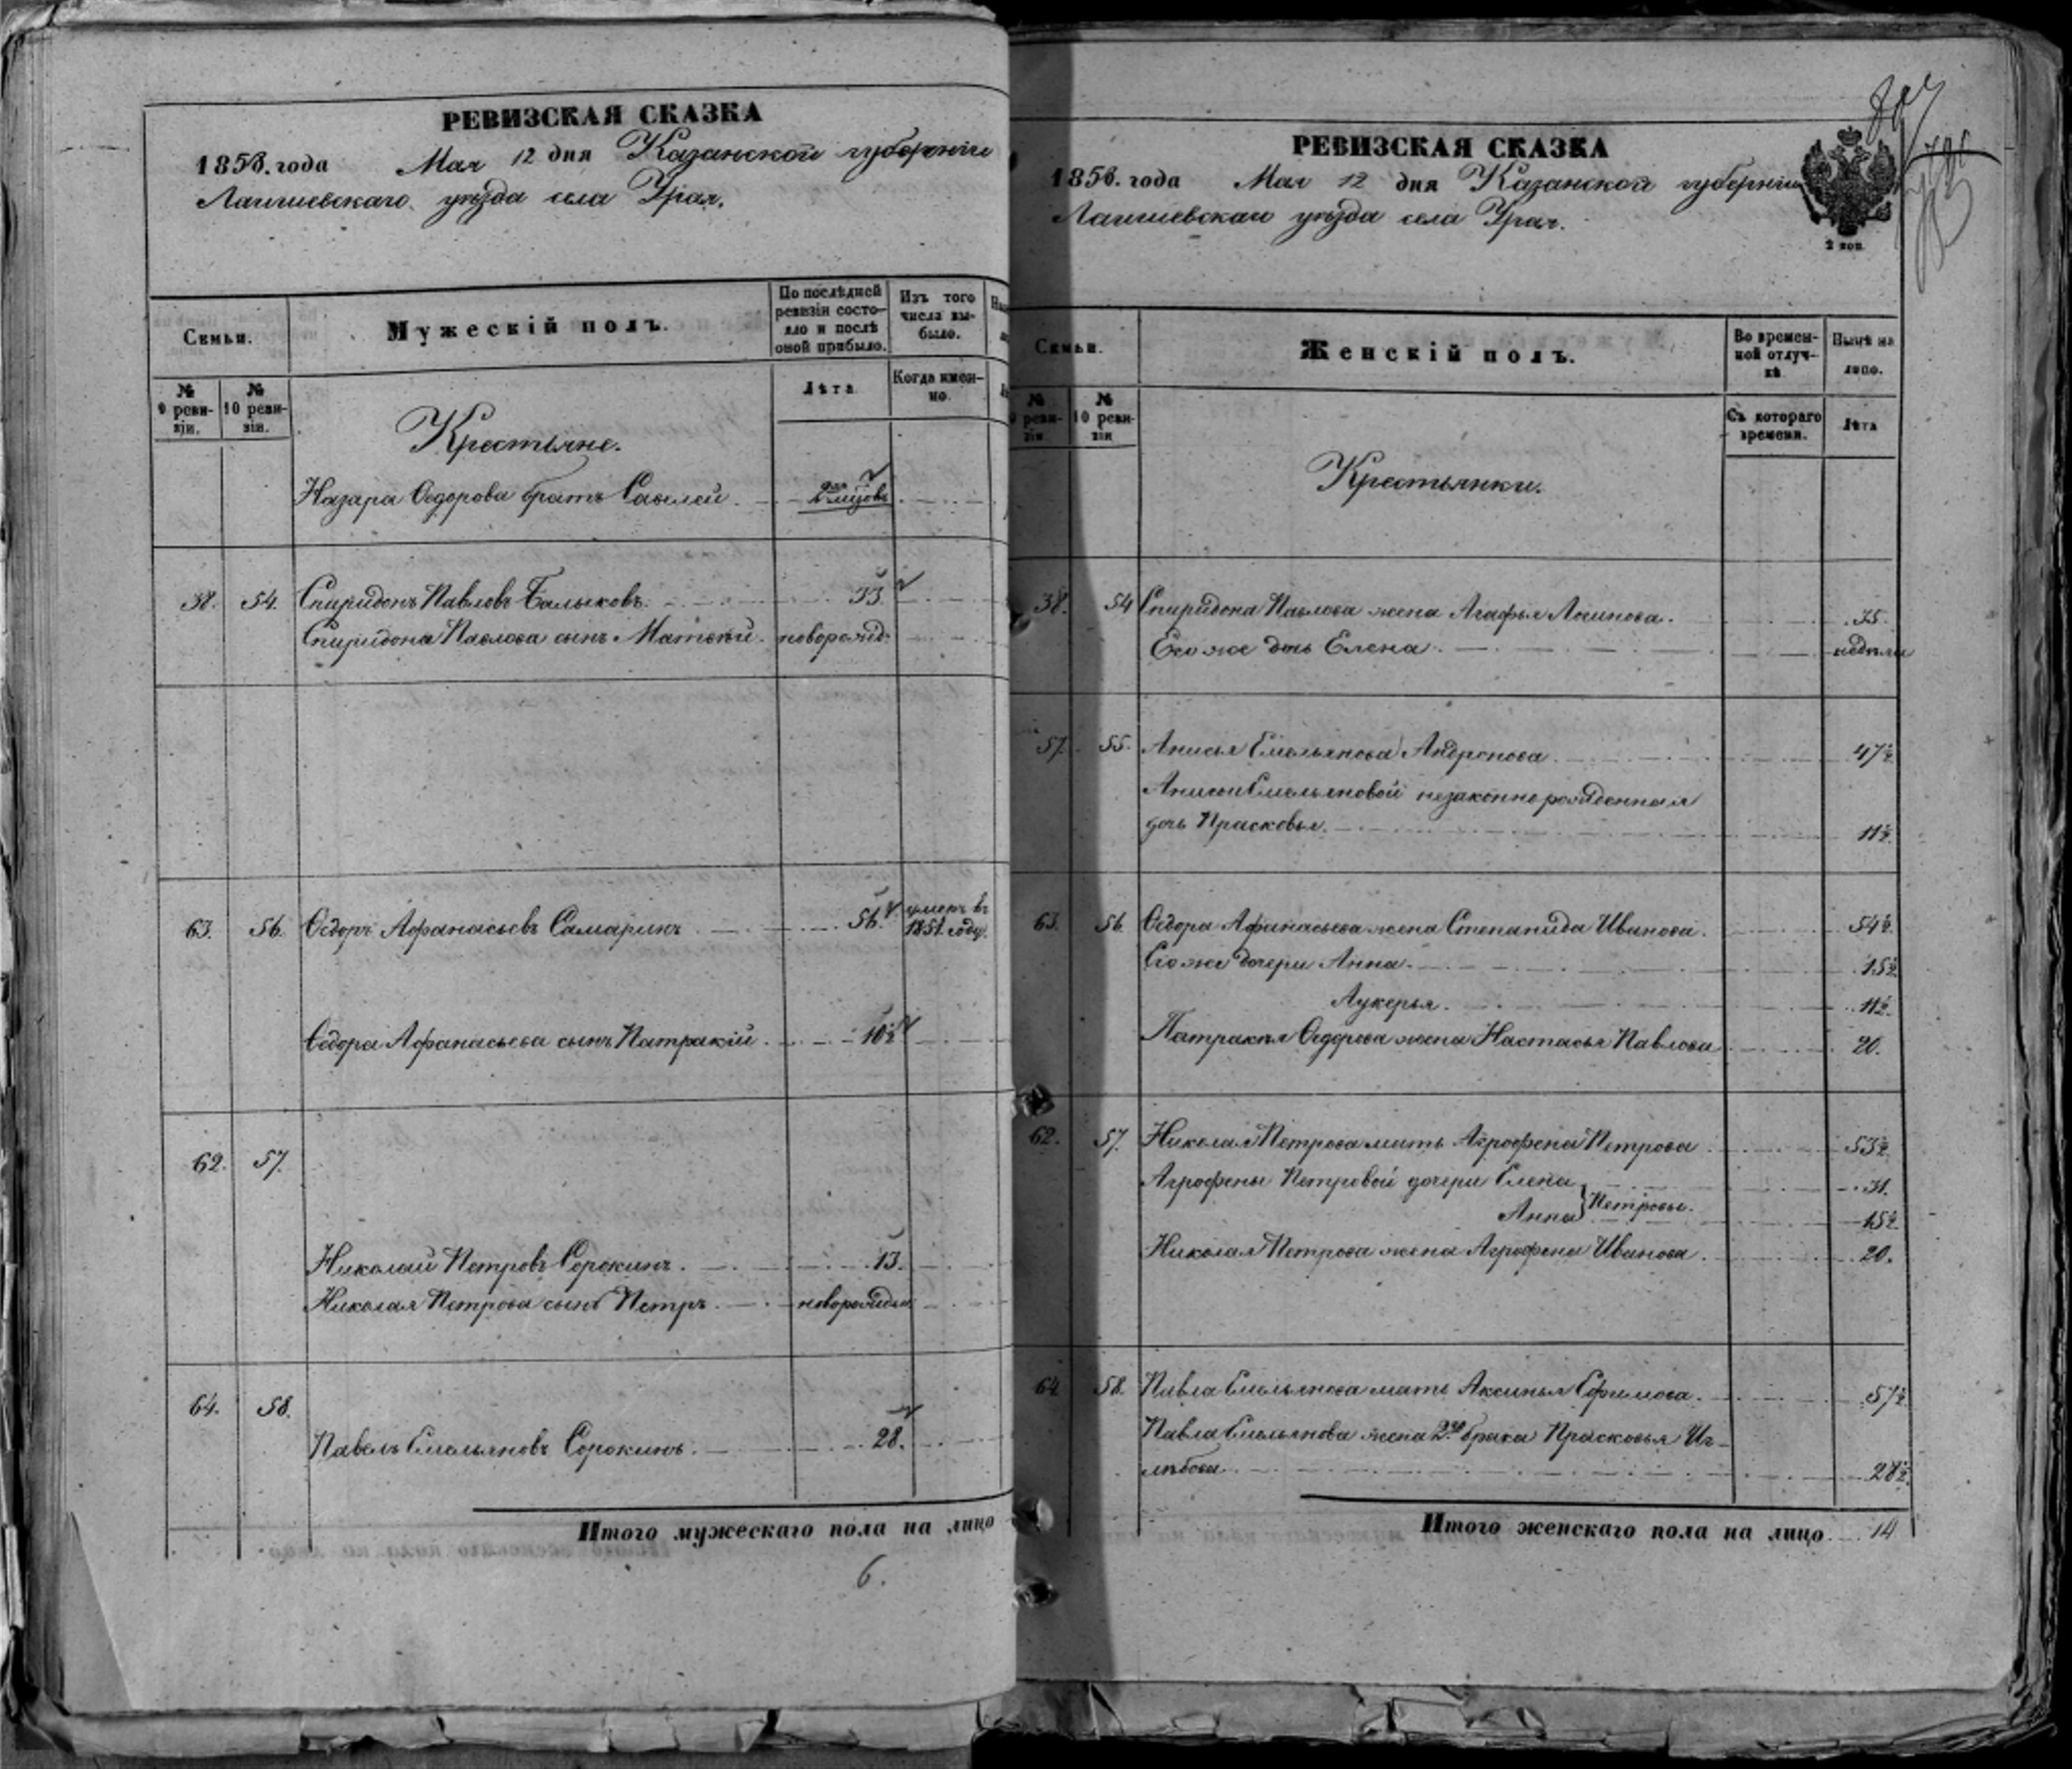 РЕВИЗСКАЯ СКАЗКА
1858. года Мая 12 дня Казанской губерніи
Лаишевскаго уѣзда села Урая.
Семьи.
Мужескій полъ.
По послѣдней ревизіи состояло и послѣ оной прибыло.
Изъ того числа выбыло.
№ 9 ревизіи.
№ 10 ревизіи.
Лѣта
Когда именно.
Крестьяне.
Назара Ѳедорова братъ Савелей
38. 54. Спиридонъ Павловъ Балыковъ. 33.
Спиридона Павлова сынъ Матвѣй. новорожд.
63. 56. Ѳедоръ Афанасьевъ Самаринъ 56. умеръ въ
1851. году.
Ѳедора Афанасьева сынъ Патракій. 10½
62. 57.
Николай Петровъ Сорокинъ. 13.
Николая Петрова сынъ Петръ. новорожден
64. 58.
Павелъ Емельяновъ Сорокинъ. 28.
Итого мужескаго пола на лицо
6.
РЕВИЗСКАЯ СКАЗКА
1858. года Мая 12 дня Казанской губерніи
Лаишевскаго уѣзда села Урая.
2 коп
Семьи.
Женскій полъ.
Во временной отлучкѣ
Нынѣ на лицо.
№ 9 ревизіи.
№ 10 ревизіи
Съ котораго времени.
Лѣта
Крестьянки.
38. 54 Спиридона Павлова жена Агафья Логинова. 35.
Его же дочь Елена. недѣли
57. 55. Анисья Емельянова Андронова 47½
Анисьи Емельяновой незаконнорожденная
дочь Прасковья. 11½
63. 56. Ѳедора Афанасьева жена Степанида Иванова. 54½
Его же дочери Анна. 15½
Лукерья. 11½
Патракѣя Ѳедорова жена Настасья Павлова 20.
62. 57. Николая Петрова мать Агрофена Петрова 53½
Агрофены Петровой дочери Елена 31.
Анна } Петровы. 15½
Николая Петрова жена Агрофена Иванова. 20.
64 58. Павла Емельянова мать Аксинья Ефимова. 57½
Павла Емельянова жена 2го брака Прасковья
28½
Итого женскаго пола на лицо 14